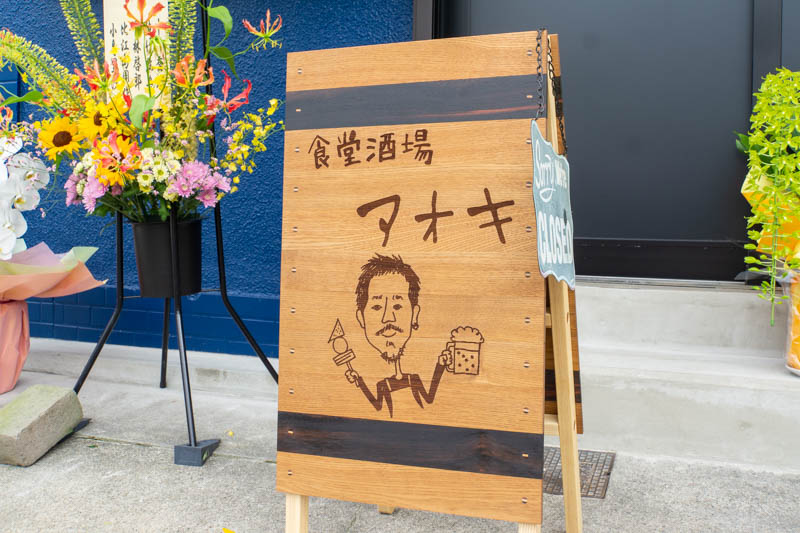 食堂酒場
アオキ
Sorry we're
CLOSED